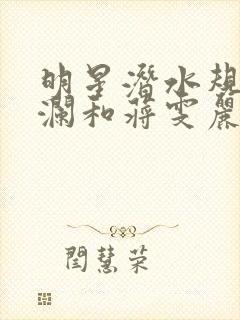 明星潛水規
瀾和蔣雯麗
閆慧荣